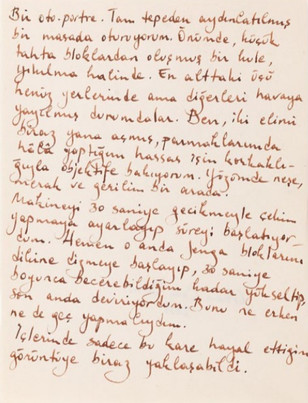 Bir oto-portre. Tam tepeden aydınlatılmış
bir masada oturuyorum. Önümde, küçük
tahta bloklardan oluşmuş bir kule,
yıkılma halinde. En alttaki üçü
henüz yerlerinde ama diğerleri havaya
yayılmış durumdalar. Ben, iki elimi
biraz yana açmış, parmaklarımda
hâlâ yaptığım hassas işin korkaklı-
ğıyla objektife bakıyorum. Yüzümde neşe,
merak ve gerilim bir arada.
Makineyi 30 saniye gecikmeyle çekim
yapmaya ayarlayıp süreyi başlatıyor-
dum. Hemen o anda jenga bloklarını
dikine dizmeye başlayıp, 30 saniye
boyunca becerebildiğim kadar yükseltip,
son anda deviriyordum. Bunu ne erken
ne de geç yapmalıydım.
İçlerinde sadece bu kare hayal ettiğim
görüntüye biraz yaklaşabildi.